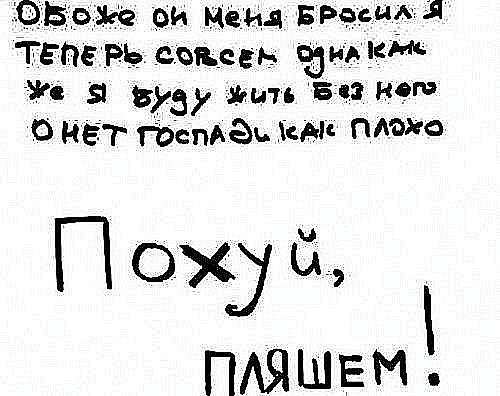 О боже он меня бросил я
теперь совсем одна как
же я буду жить без него
о нет госпади как плохо
Похуй,
пляшем!